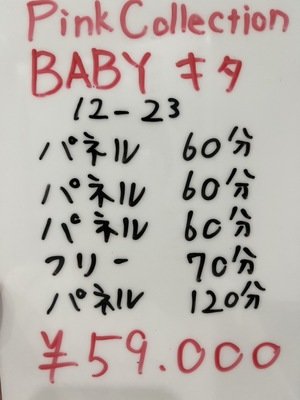 Pink Collection
BABY キタ
12-23
パネル 60分
パネル 60分
パネル 60分
フリー 70分
パネル 120分
¥59.000